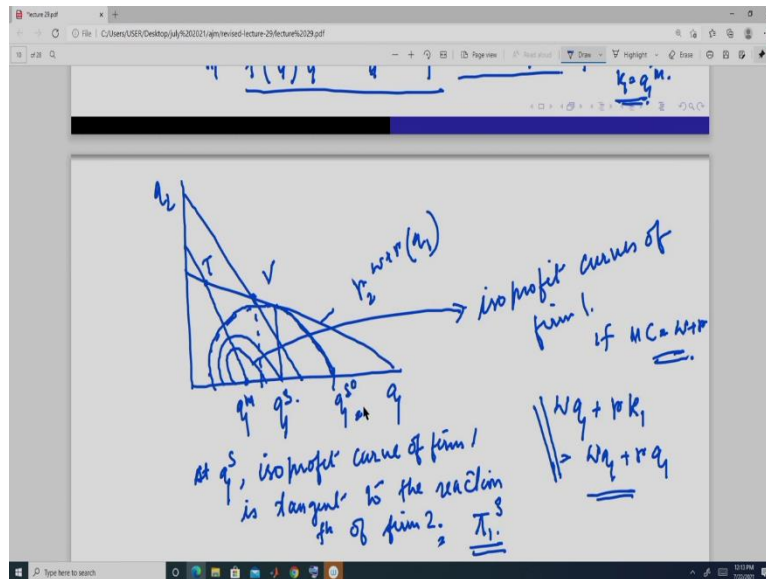 lecture 29.pdf
File | C:/Users/USER/Desktop/july%202021/ajm/revised-lecture-29/lecture%2029.pdf
10 of 28
Page view
Read aloud
Draw
Highlight
Erase
k₁ = q₁ᴹ.
q₂
T
V
r₂ʷ⁺ʳ(q₁)
isoprofit curves of
firm 1.
if MC = w+r
q₁ᴹ q₁ˢ. q₁ˢ⁰ q₁
wq₁ + rk₁
= wq₁ + rq₁
At q₁ˢ, isoprofit curve of firm 1
is tangent to the reaction
fn of firm 2. π₁ˢ.
Type here to search
12:13 PM